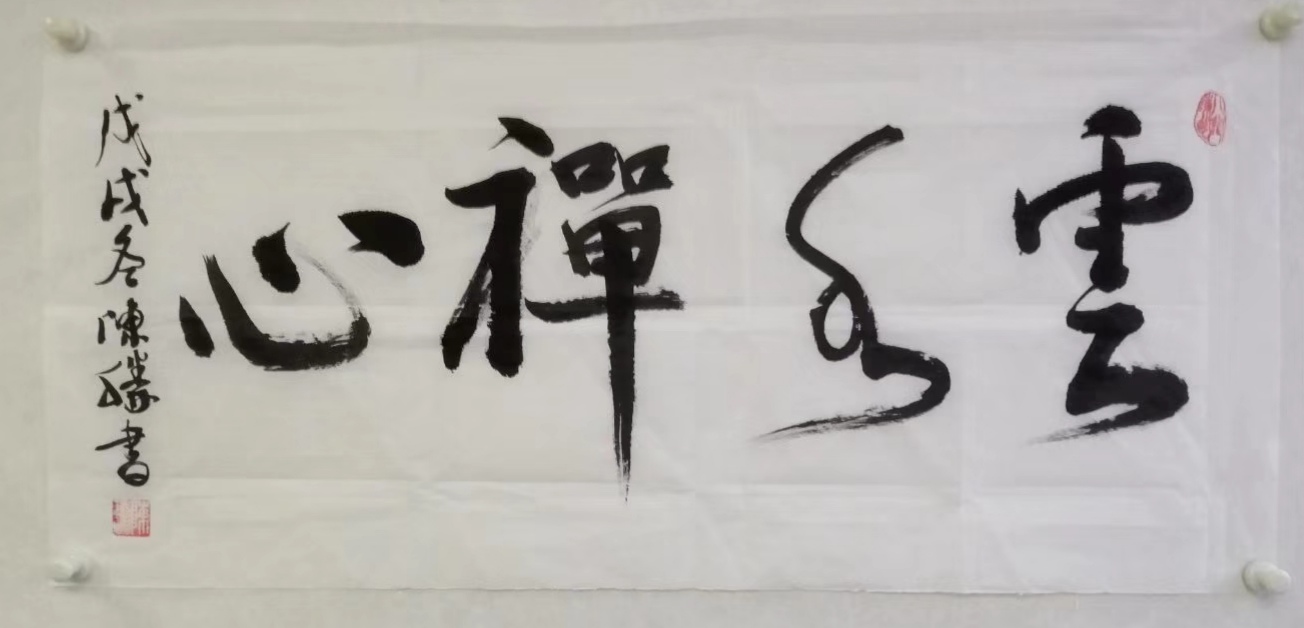 雲水禪心
戊戌冬陳勝書